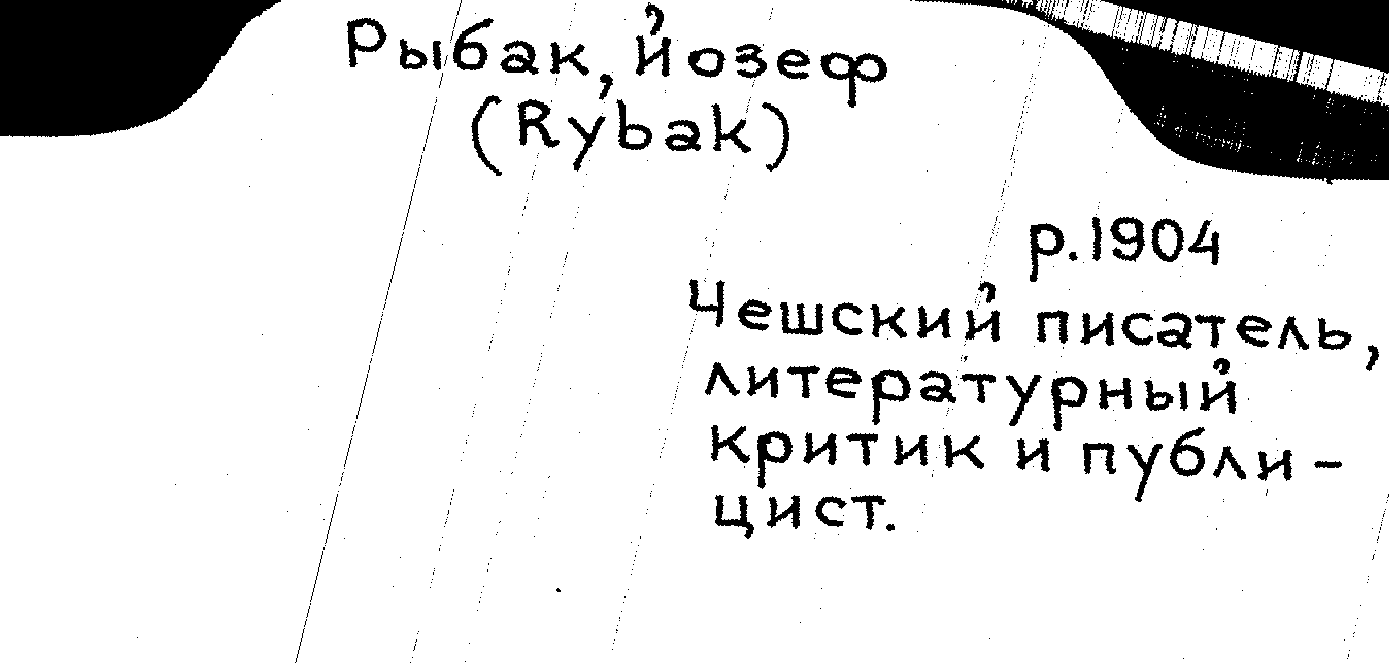 Рыбак, Йозеф
(Rybak)
р. 1904
Чешский писатель,
литературный
критик и публи-
цист.